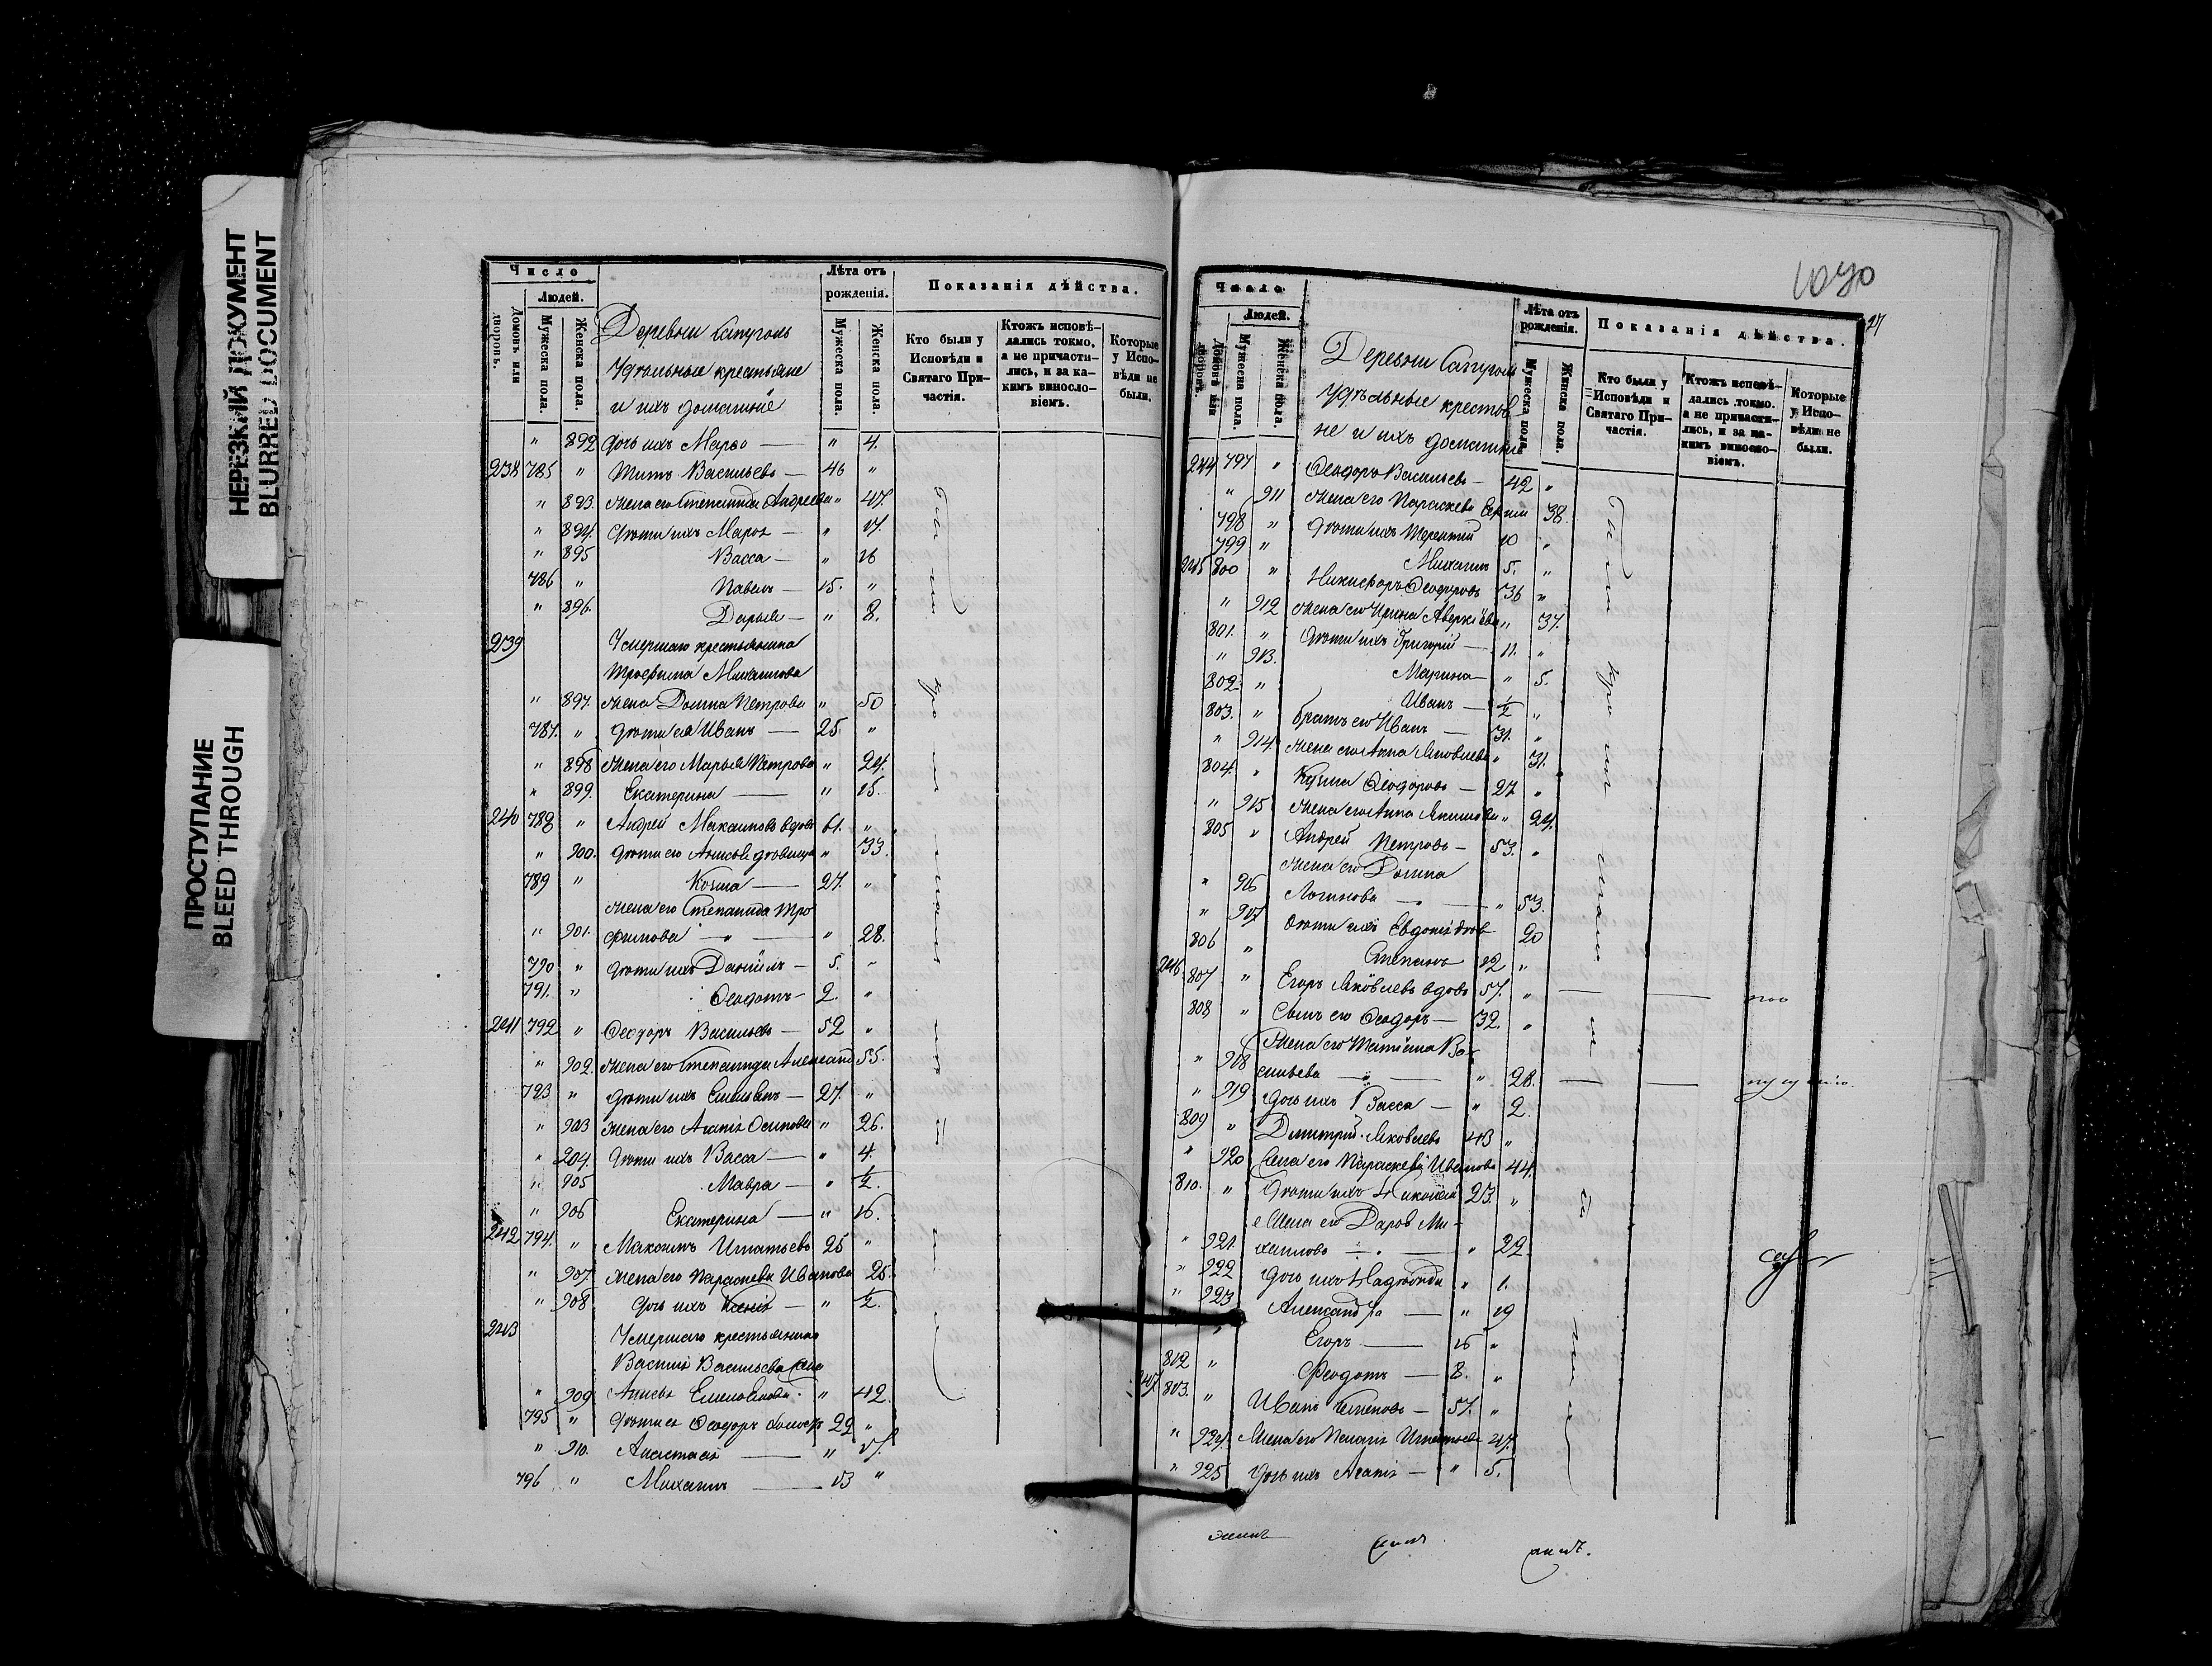 НЕРЕЗКИЙ ДОКУМЕНТ
BLURRED DOCUMENT
ПРОСТУПАНИЕ
BLEED THROUGH
Число
Людей.
Домовъ или дворовъ.
Мужеска пола.
Женска пола.
Деревни
Удѣльные крестьяне
и ихъ домашніе
Лѣта отъ рожденія.
Мужеска пола.
Женска пола.
Показанія дѣйства.
Кто были у Исповѣди и Святаго Причастія.
Ктожъ исповѣдались токмо, а не причастились, и за какимъ винословіемъ.
Которые у Исповѣди не были.
" 892 Дочь ихъ Марѳа — " 4.
238 785 " Титъ Васильевъ — 46 "
" 893. Жена его Степанида Андреева " 47.
" 894. Дѣти ихъ — " 17.
" 895 Васса — " 16
786 " Павелъ — 15. "
" 896. Дарья — " 8.
239 Умершаго крестьянина
Трофима Михайлова
" 897. Жена Домна Петрова " 50
787. " Дѣти ея Иванъ — 25. "
" 898 Жена его Марья Петрова " 24.
" 899. Екатерина — " 15.
240 788 " Андрей вдовъ 61. "
" 900. Дѣти его Анисья дѣвица " 33
789 " Козма — 27. "
Жена его Степанида Тро
" 901. фимова — " — " 28.
790 " Дѣти ихъ Даніилъ — 5. "
791. " Ѳеодотъ — 2. "
241 792 " Ѳеодоръ Васильевъ — 52 "
" 902. Жена его Степанида Александ 55.
793 " Дѣти ихъ — 27. "
" 903 Жена его Агапія Осипова " 26.
" 904. Дѣти ихъ Васса — " 4.
" 905 Мавра — " ½.
" 906 Екатерина — " 16.
242 794. " Максимъ Игнатьевъ 25 "
" 907. Жена его Параскева Иванова 25.
" 908 Дочь ихъ Ксенія — " ½.
243 Умершаго крестьянина
Василія Васильева жена
" 909 Анисья " 42.
795 " Дѣти ея Ѳеодоръ холостъ 22 "
" 910. Анастасія — " 17.
796 " Михаилъ — 13 "
Были у исповѣди
Число
Людей.
Домовъ или дворовъ.
Мужеска пола.
Женска пола.
Деревни
Удѣльные крестья-
не и ихъ домашніе
Лѣта отъ рожденія.
Мужеска пола.
Женска пола.
Показанія дѣйства.
Кто были у Исповѣди и Святаго Причастія.
Ктожъ исповѣдались токмо. а не причастились, и за какимъ винословіемъ.
Которые у Исповѣди не были.
27
244 797 " Ѳеодоръ Васильевъ — 42 "
" 911 Жена его Параскева 38.
798 " Дѣти ихъ Терентій 10 "
799 " Михаилъ 5. "
245 800 " Никифоръ Ѳеодоровъ 36 "
" 912 Жена его Ирина Аверкіева " 37.
801. " Дѣти ихъ Григорій — 11. "
" 913. Марина — " 5.
802. " Иванъ — ½ "
803. " Братъ его Иванъ — 31. "
" 914. Жена его Анна Яковлева " 31.
804. " Козма Ѳеодоровъ — 27 "
" 915 Жена его Анна " 24.
805 " Андрей Петровъ — 53. "
Жена его Домна
" 916 Логинова — " — " 53.
" 917 Дѣти ихъ Евдокія 20
806 " Степанъ 12 "
246 807 " Егоръ Яковлевъ вдовъ 57. "
808 " Сынъ его Ѳеодоръ — 32. "
Жена его Татіана Ва-
" 918 сильева — " — " 28.
" 919 Дочь ихъ Васса — " 2.
809 " Димитрій Яковлевъ 43 "
" 920 Жена его Параскева Иванова 44.
810. " Дѣти ихъ Николай 23. "
Жена его Дарья Ми-
" 921. хайлова — " — " 22.
" 922 Дочь ихъ Надежда " 1.
" 923 Александра — " 19
" Егоръ — 16 "
812 " Ѳеодотъ — 8. "
247 813. " Иванъ — 57. "
" 924. Жена его Пелагія Игнатьева 47.
" 925 Дочь ихъ Агапія — " 5.